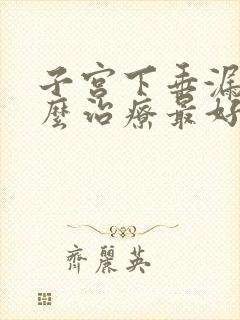 子宫下垂漏
麼治療最好
齊麗英